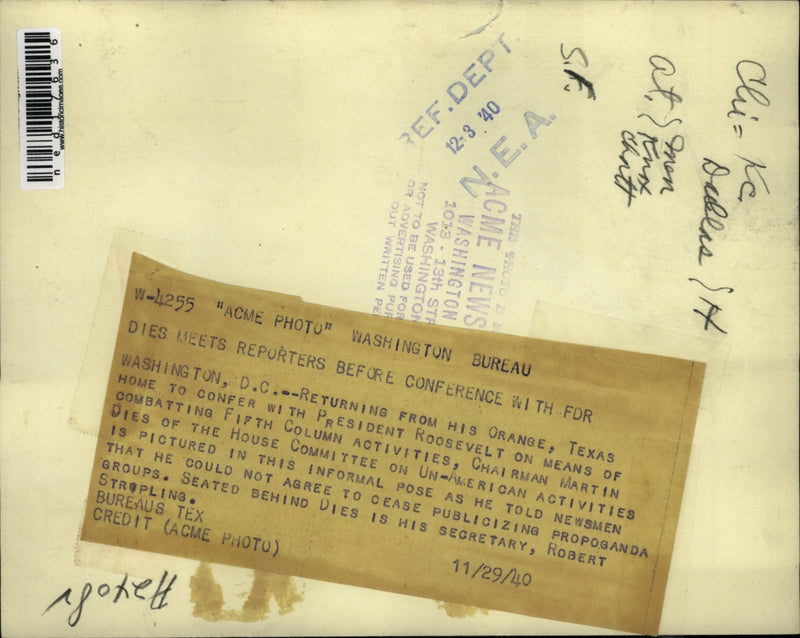 W-4255 "ACME PHOTO" WASHINGTON BUREAU
DIES MEETS REPORTERS BEFORE CONFERENCE WITH FDR
WASHINGTON, D.C.--RETURNING FROM HIS ORANGE, TEXAS
HOME TO CONFER WITH PRESIDENT ROOSEVELT ON MEANS OF
COMBATTING FIFTH COLUMN ACTIVITIES, CHAIRMAN MARTIN
DIES OF THE HOUSE COMMITTEE ON UN-AMERICAN ACTIVITIES
IS PICTURED IN THIS INFORMAL POSE AS HE TOLD NEWSMEN
THAT HE COULD NOT AGREE TO CEASE PUBLICIZING PROPOGANDA
GROUPS. SEATED BEHIND DIES IS HIS SECRETARY, ROBERT
STROPLING.
BUREAUS TEX
CREDIT (ACME PHOTO)
11/29/40
REF. DEPT.
12-3 '40
N.E.A.
ACME NEWS
WASHINGTON
1013 - 13th STR
WASHINGTON
NOT TO BE USED FOR
OR ADVERTISING PUR
OUT WRITTEN PE
S.F.
at.
Knox
Chi = Kc.
H
ned17636
www.historicimages.com